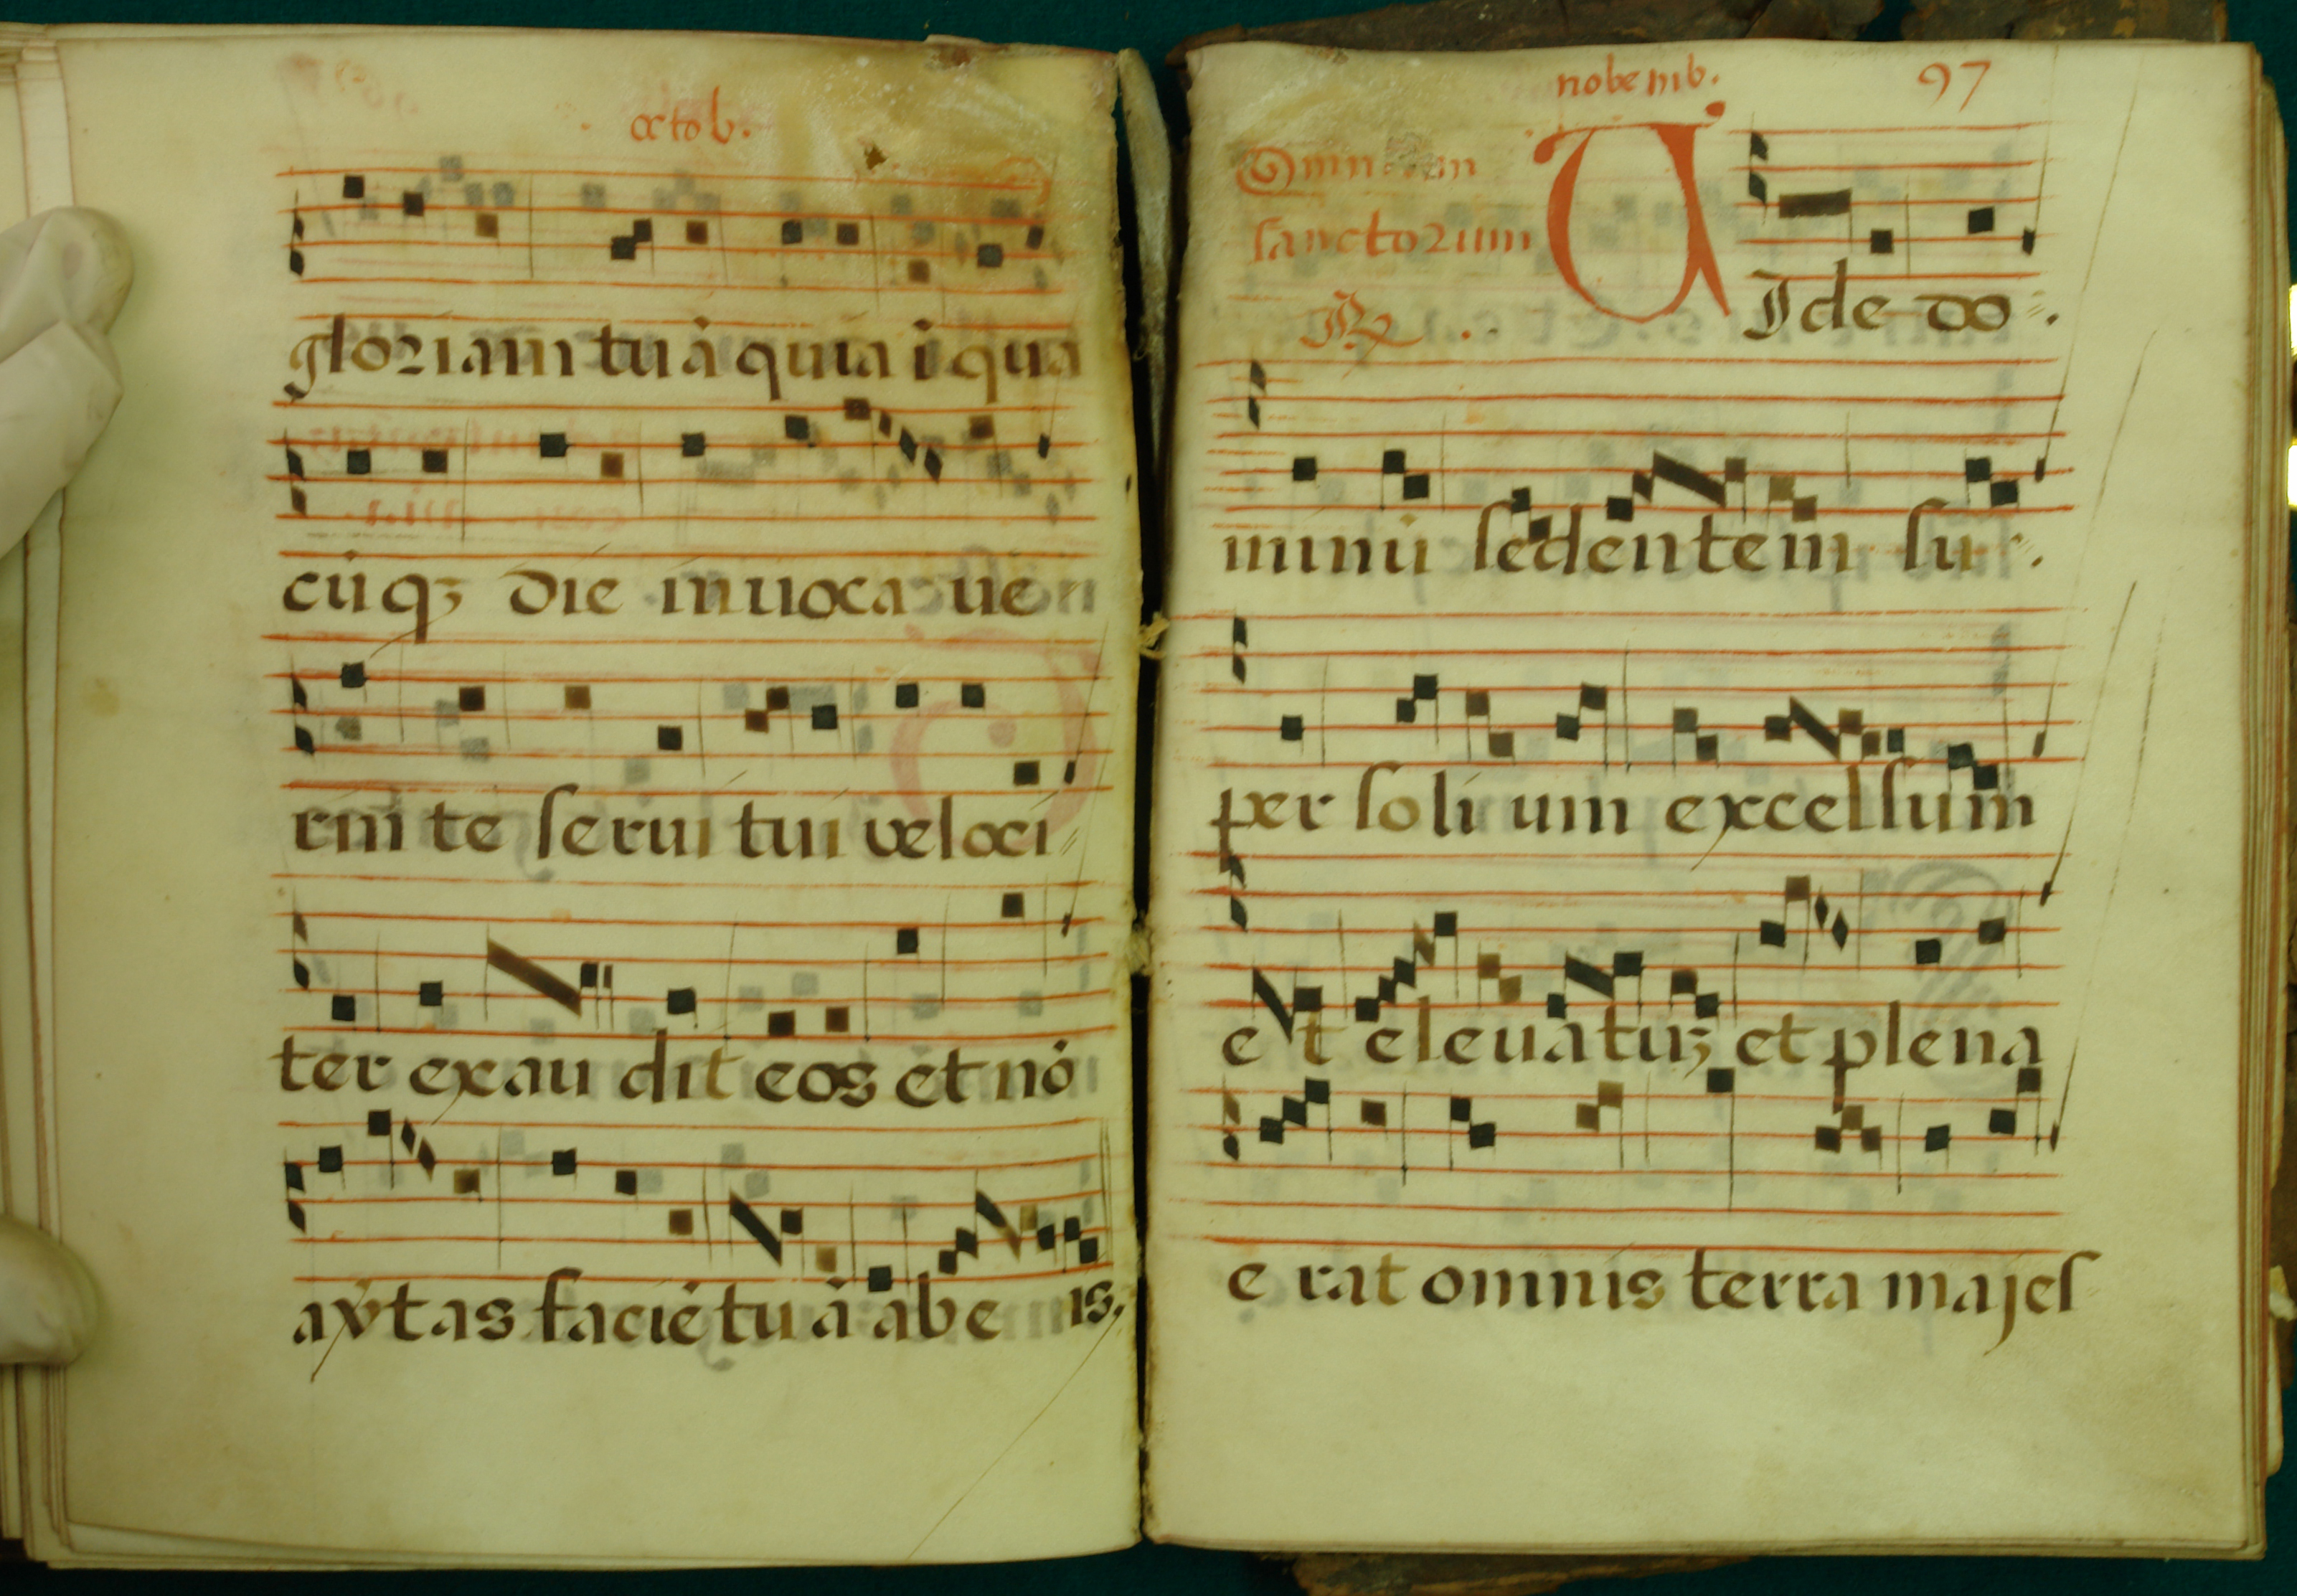 octob.
gloriam tuā quia ī qua
cūqꝫ die inuocaue
rint te serui tui veloci
ter exau dit eos et nō
aṽtas faciē tuā ab e is.
nobemb. 97
Omnium
sanctorum
℟. UIde do
minū sedentem su
per solium excelsum
et eleuatuꝫ et plena
erat omnis terra majes